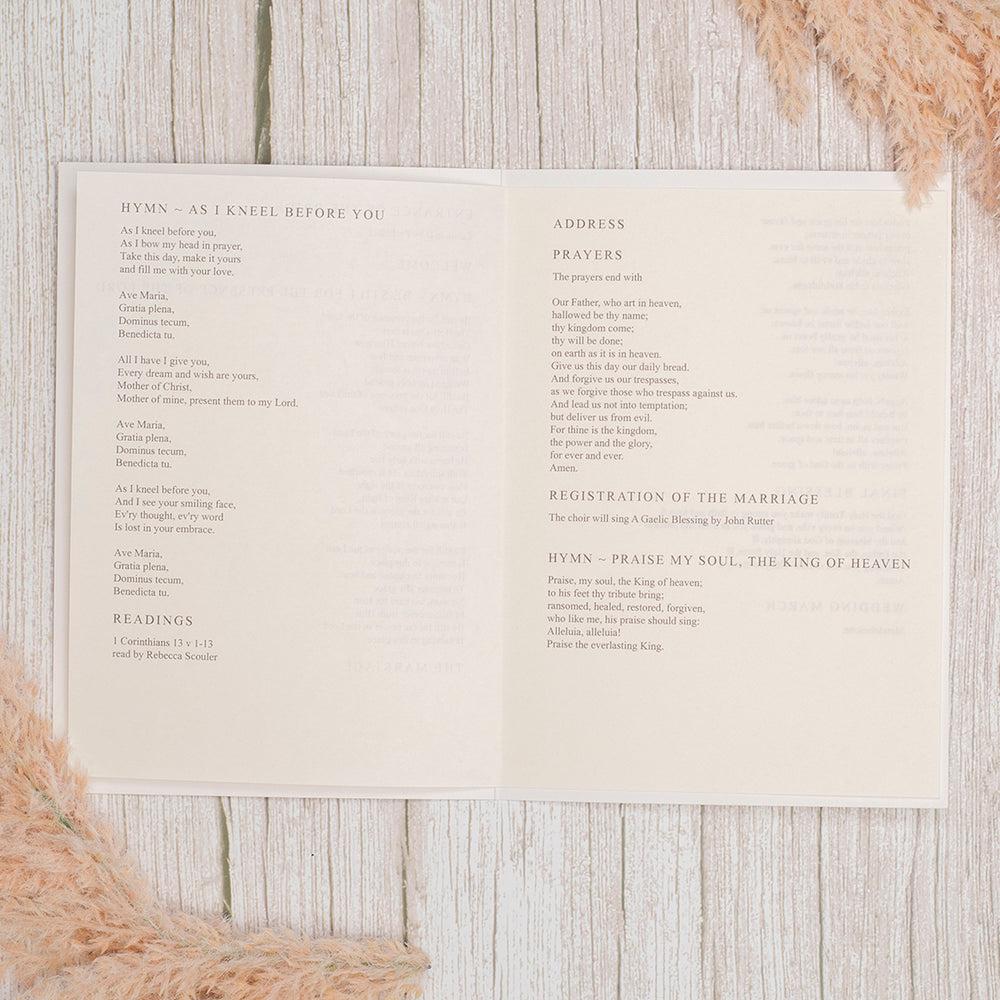 HYMN ~ AS I KNEEL BEFORE YOU
As I kneel before you,
As I bow my head in prayer,
Take this day, make it yours
and fill me with your love.
Ave Maria,
Gratia plena,
Dominus tecum,
Benedicta tu.
All I have I give you,
Every dream and wish are yours,
Mother of Christ,
Mother of mine, present them to my Lord.
Ave Maria,
Gratia plena,
Dominus tecum,
Benedicta tu.
As I kneel before you,
And I see your smiling face,
Ev'ry thought, ev'ry word
Is lost in your embrace.
Ave Maria,
Gratia plena,
Dominus tecum,
Benedicta tu.
READINGS
1 Corinthians 13 v 1-13
read by Rebecca Scouler
ADDRESS
PRAYERS
The prayers end with
Our Father, who art in heaven,
hallowed be thy name;
thy kingdom come;
thy will be done;
on earth as it is in heaven.
Give us this day our daily bread.
And forgive us our trespasses,
as we forgive those who trespass against us.
And lead us not into temptation;
but deliver us from evil.
For thine is the kingdom,
the power and the glory,
for ever and ever.
Amen.
REGISTRATION OF THE MARRIAGE
The choir will sing A Gaelic Blessing by John Rutter
HYMN ~ PRAISE MY SOUL, THE KING OF HEAVEN
Praise, my soul, the King of heaven;
to his feet thy tribute bring;
ransomed, healed, restored, forgiven,
who like me, his praise should sing:
Alleluia, alleluia!
Praise the everlasting King.